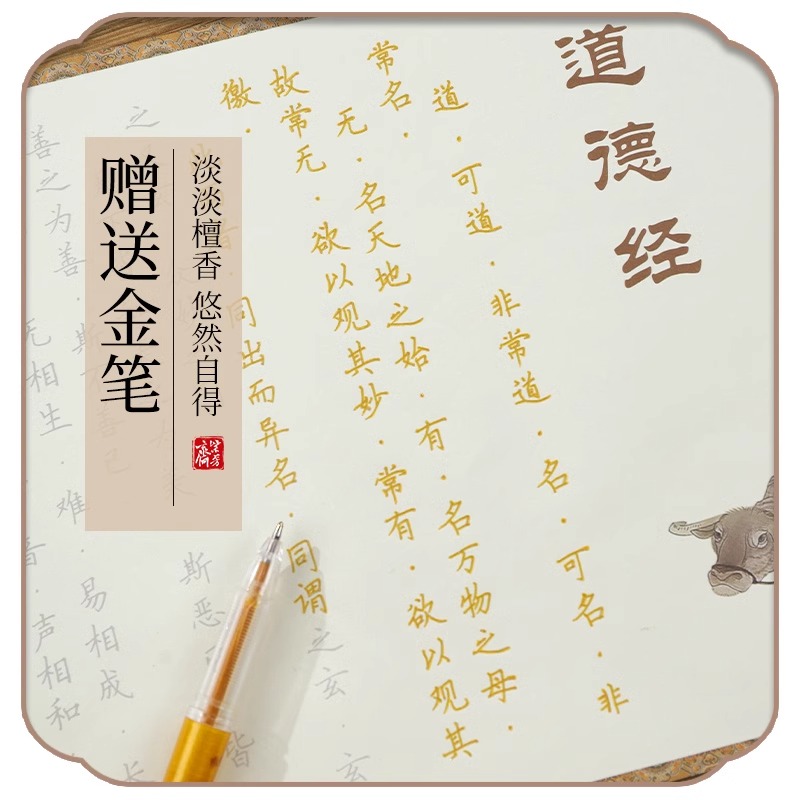 道德经
道·可道·非常道·名·可名·非
常名·
无·名天地之始·有·名万物之母·
故常无·欲以观其妙·常有·欲以观其
徼·
同出而异名·同谓之玄·玄
之
斯恶
皆
善之为善·斯不善已
无相生·难易相成·长
音·声相和
淡淡檀香 悠然自得
赠送金笔